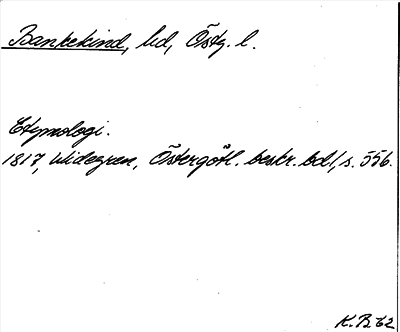 Bankekind, hd, Östg. l.
Etymologi.
1817, Widegren, Östergötl. beskr. bd 1, s. 556.
K.B. 62